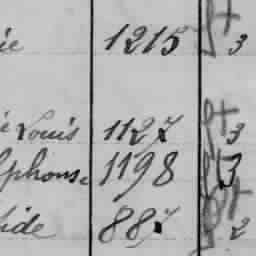 ie 1215 3
Louis 1127 3
lphonse 1198 3
ide 887 2